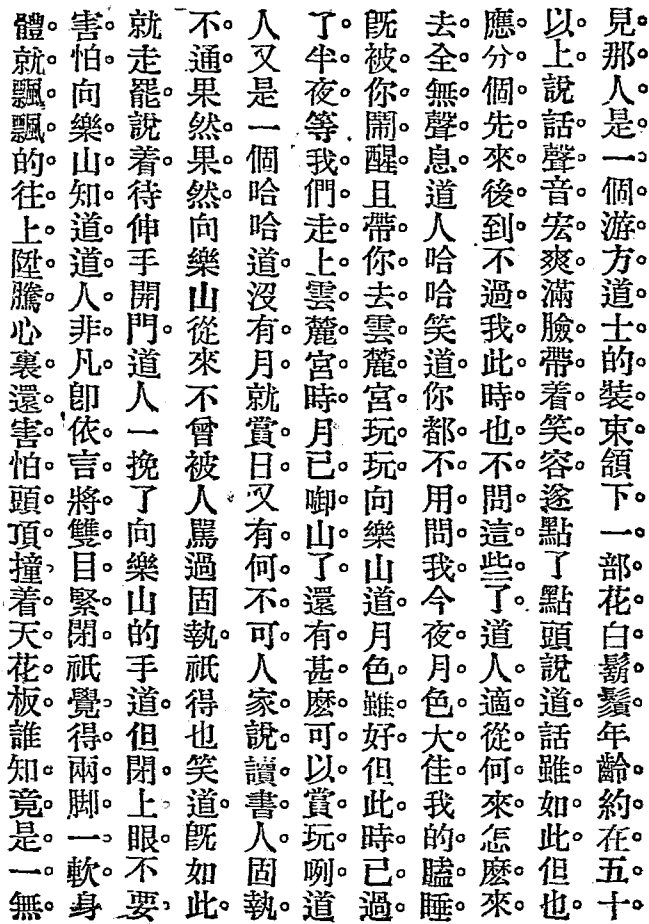 見那人是一個游方道士的裝束頷下一部花白鬍鬚年齡約在五十
以上說話聲音宏爽滿臉帶着笑容遂點了點頭說道話雖如此但也
應分個先來後到不過我此時也不問這些了道人適從何來怎麽來
去全無聲息道人哈哈笑道你都不用問我今夜月色大佳我的瞌睡
旣被你鬧醒且帶你去雲麓宮玩玩向樂山道月色雖好但此時已過
了半夜等我們走上雲麓宮時月已啣山了還有甚麽可以賞玩咧道
人又是一個哈哈道沒有月就賞日又有何不可人家說讀書人固執
不通果然果然向樂山從來不曾被人罵過固執祇得也笑道旣如此
就走罷說着待伸手開門道人一挽了向樂山的手道但閉上眼不要
害怕向樂山知道道人非凡卽依言將雙目緊閉祇覺得兩脚一軟身
體就飄飄的往上陞騰心裏還害怕頭頂撞着天花板誰知竟是一無